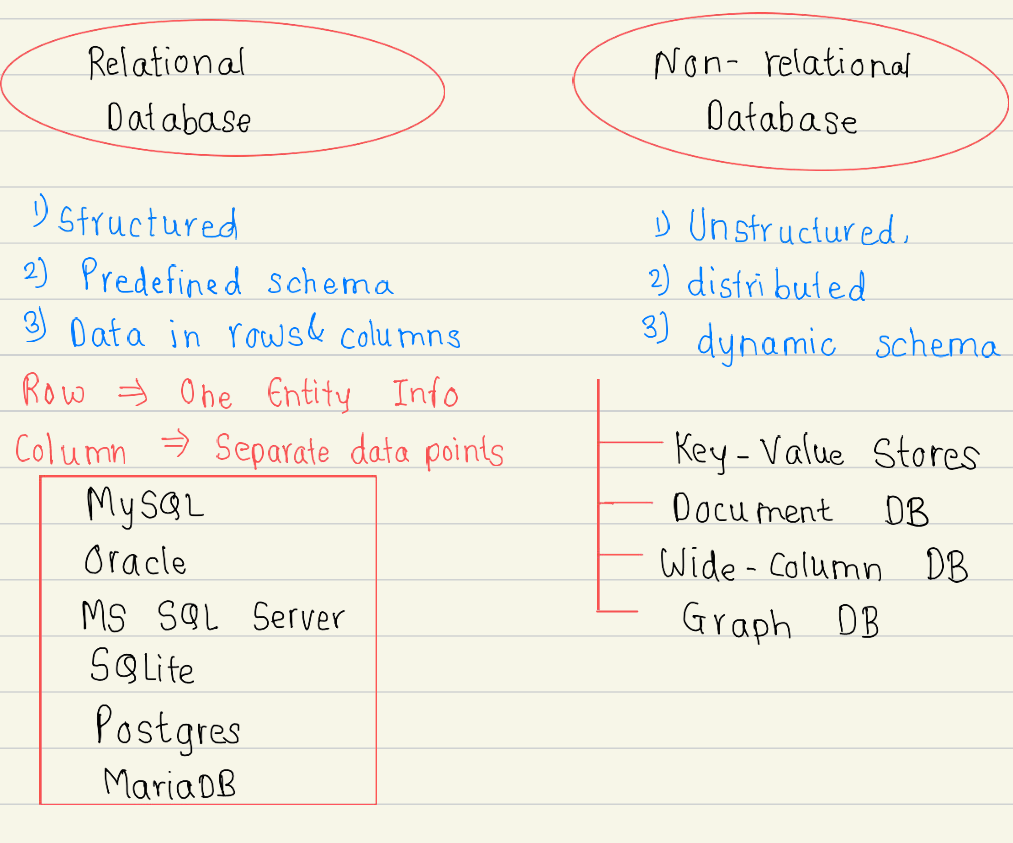 Relational
Database
1) Structured
2) Predefined schema
3) Data in rows & columns
Row ⇒ One Entity Info
Column ⇒ Separate data points
MySQL
Oracle
MS SQL Server
SQLite
Postgres
MariaDB
Non- relational
Database
1) Unstructured,
2) distributed
3) dynamic schema
Key-Value Stores
Document DB
Wide-Column DB
Graph DB